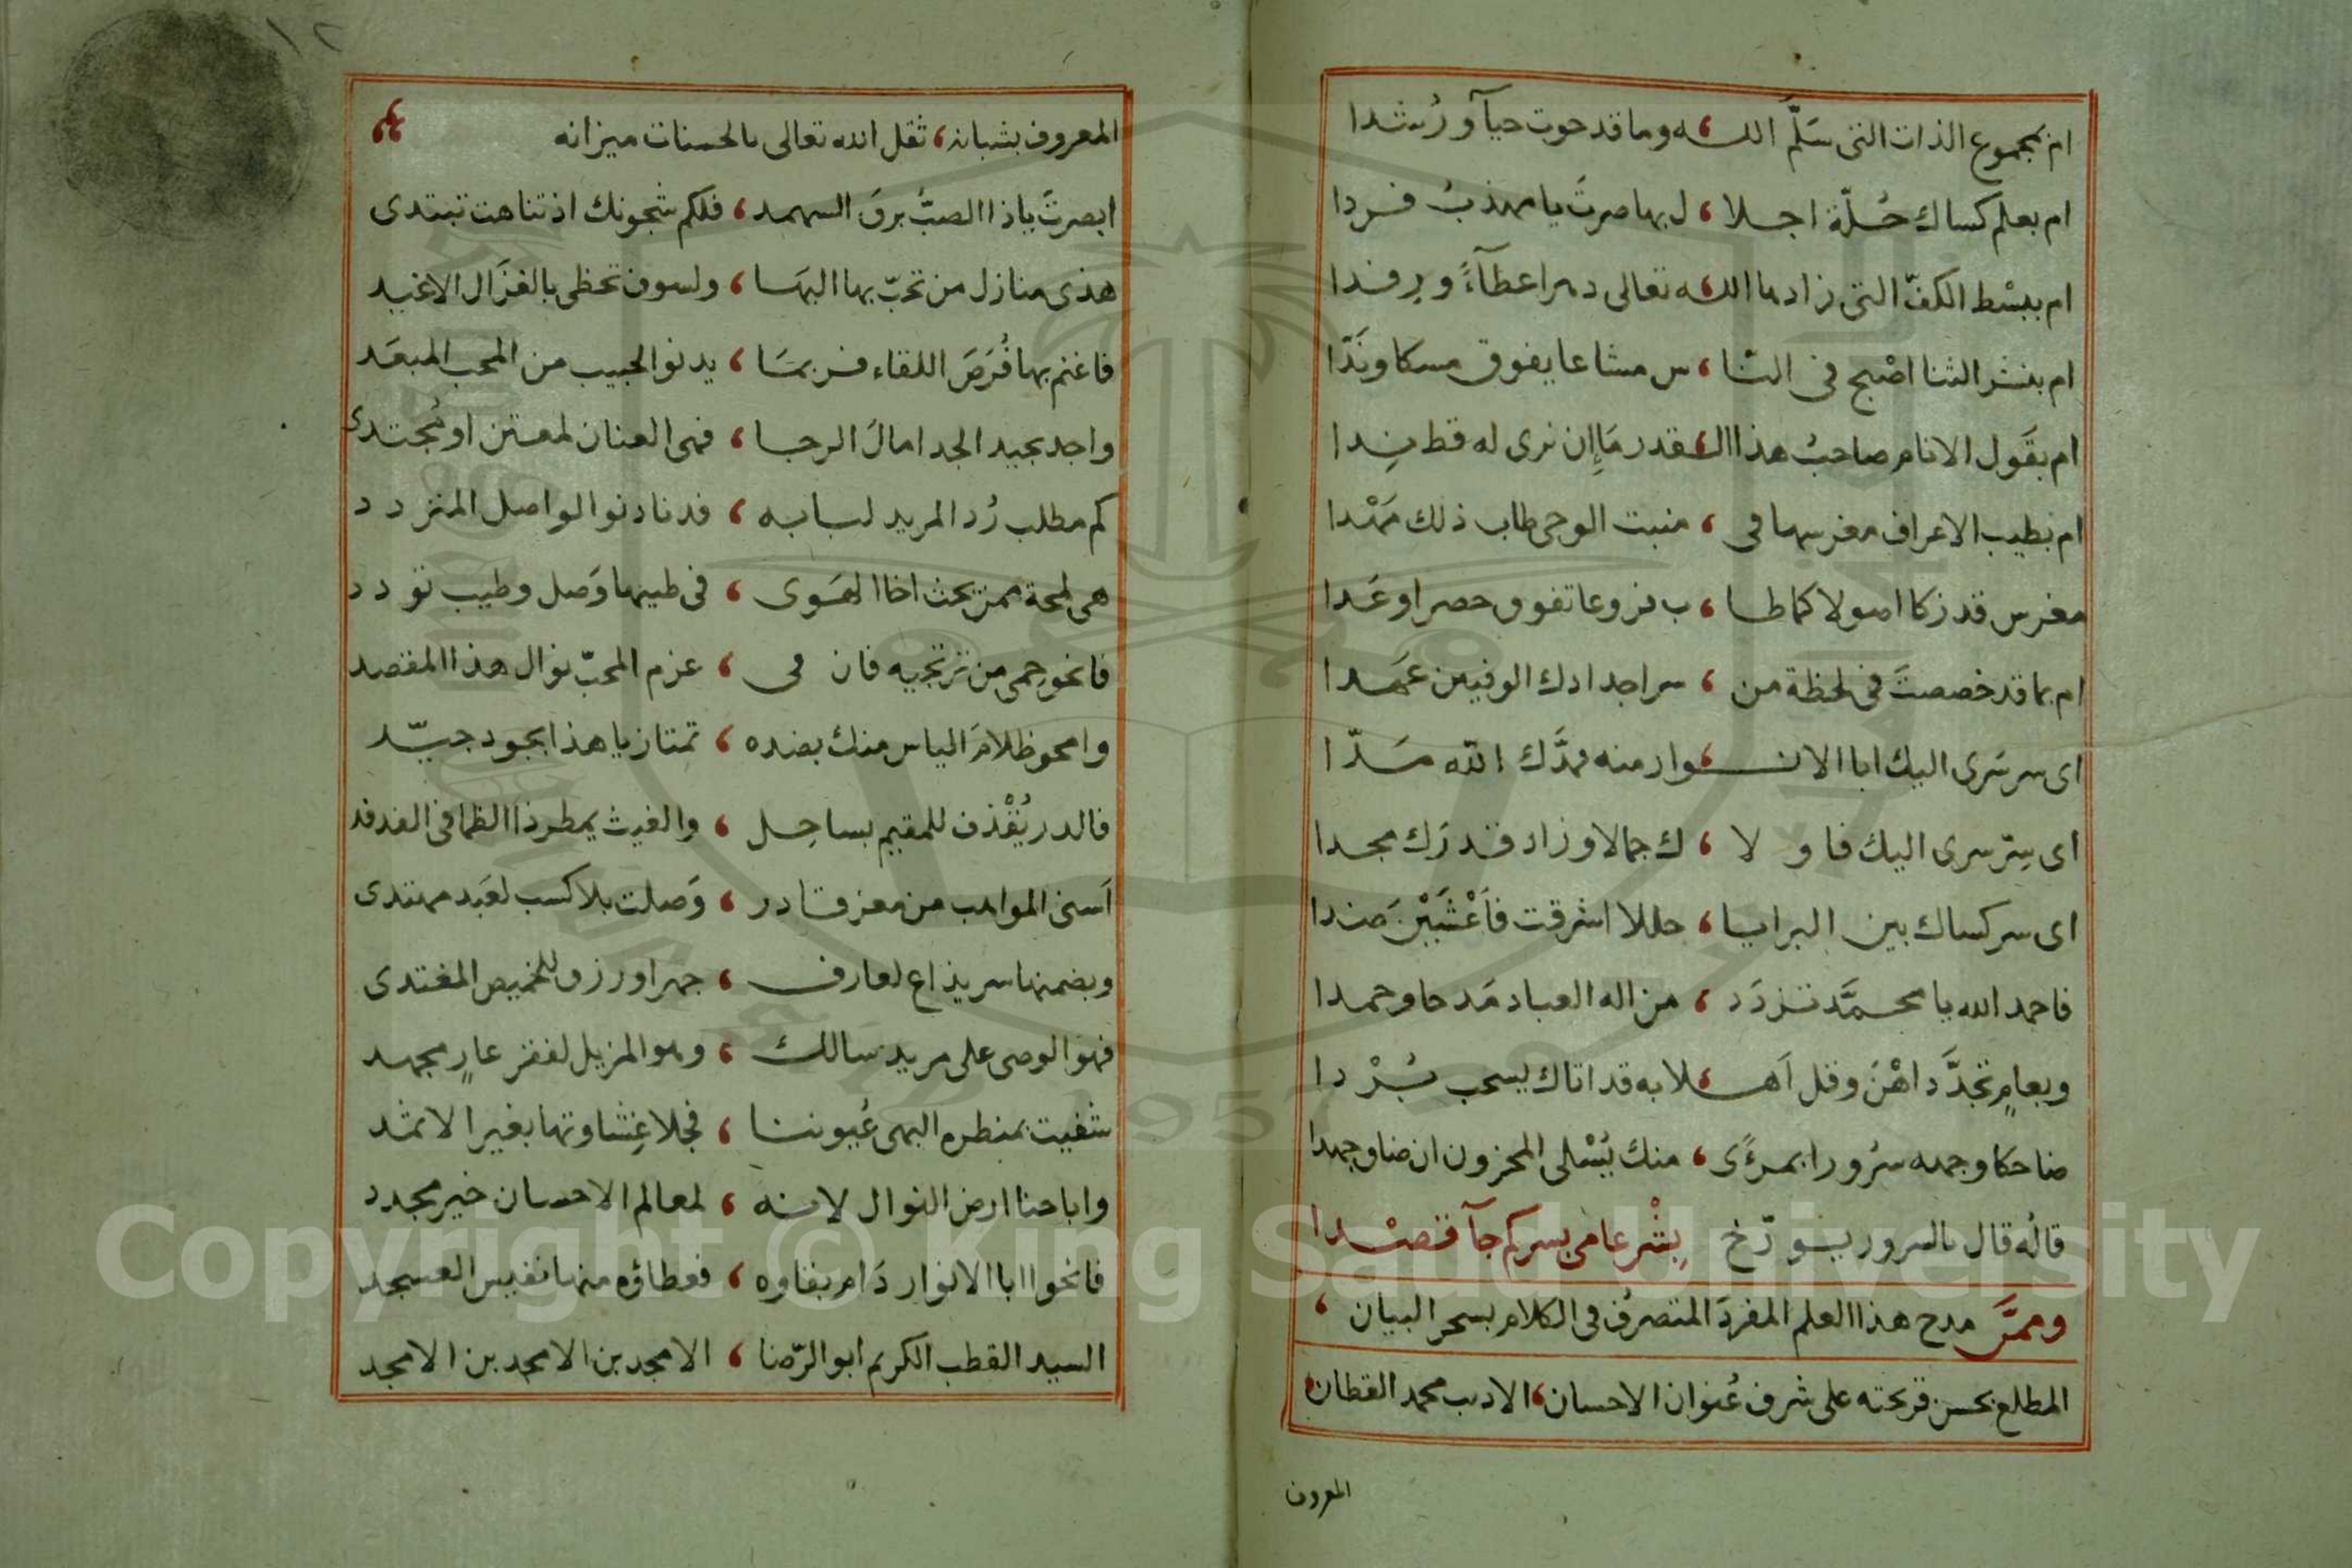 ام بمجموع الذات التى سَلَّمَ اللـ ، ـه وما قد حوت حيآ و رُشدا
ام بعلم كساك حُلّة اجلا ، ل بها صرتَ يا مهذبُ فردا
ام ببسْط الكفّ التى زادها اللـ ، ـه تعالى دهرا عطآءً ورفدا
ام بنشر الثنا اصْبح فى النّا ، س مشاعا يفوق مسكا ونَدّا
ام بقَول الانام صاحبُ هذا الـ ، ـقدر مَا إن نرى له قط نِدا
ام بطيب الاعراق مغرسها فى ، منبت الوحى طاب ذلك مَهْدا
مغرس قد زكا اصولا كما طا ، ب فروعا تفوق حصرا وعَدا
ام بما قد خصصتَ فى لحظة من ، سر اجدادك الوفيين عهدا
اى سر سَرى اليك ابا الانـ ، ـوار منه فمدَّك الله مَدّا
اى سِرّ سرى اليك فاولا ، ك جمالا وزاد قدرَك مجدا
اى سر كساك بين البرايا ، حللا اشرقت فاَعْشَيْنَ ضدا
فاحمد الله يا محمَّد تزدَد ، من اله العباد مَدحا وحمدا
وبعامٍ تجدَّد اهْنَ وقل اَهـ ، ـلا به قد اتاك يسحب بُرْدا
ضاحكا وجهه سرُورا بمرءًى ، منك يُسْلى المحزون ان ضاق جهدا
قالُه قال بالسرور يؤرّخ بِشْر عامى بسركم جآ قصْدا
وممَّن مدح هذا العلم المفردَ المتصرفُ فى الكلام بسحر البيان ،
المطلع بحسن قريحته على شرف عُنوان الاحسان ، الاديب محمد القطان ،
المعروف
١٢
المعروف بشبانه ، ثقل الله تعالى بالحسنات ميزانه
ابصرتَ ياذا الصبُّ برقَ السهمد ، فلكم شجونك اذ تناهت تبتدى
هذى منازل من تحبّ بها البهَا ، ولسوف تحظى بالغزَال الاغيد
فاغنم بها فُرَصَ اللقاء فربمَا ، يدنو الحبيب من المحب المبعَد
واجد بجيد الجد امالَ الرجا ، فهى العنان لمعتن او مُجتدى
كم مطلب رُد المريد لبابه ، فدنا دنو الواصل المتردد
هى لمحة ممن يحث اخا الهَوى ، فى طيها وَصل وطيب تودد
فانحو حِمى من ترتجيه فان فى ، عزم المحبّ نوال هذا المقصد
وامحو ظلامَ الياس منك بضده ، تمتاز يا هذا بجود جيّد
فالدر يُقْذف للمقيم بساحِل ، والغيث يمطر ذا الظما فى الفدفد
اَسنى المواهب من معز قادر ، وَصلت بلا كسب لعَبد مهتدى
وبضمنها سر يذاع لعارف ، جهرا ورزق للخميص المغتدى
فهو الوصى على مريد سالك ، وهو المزيل لفقر عارٍ مجهد
شفيت بمنظره البهى عُيوننا ، فجلا غِشاوتها بغير الاثمد
واباحنا ارض النوال لانه ، لمعالم الاحسان خير مجدد
فانحوا ابا الانوار دَام بقاوه ، فعطاؤه منها نفيس العسجد
السيد القطب الكريم ابو الرّضا ، الامجد بن الامجد بن الامجد
Copyright © King Saud University
1957